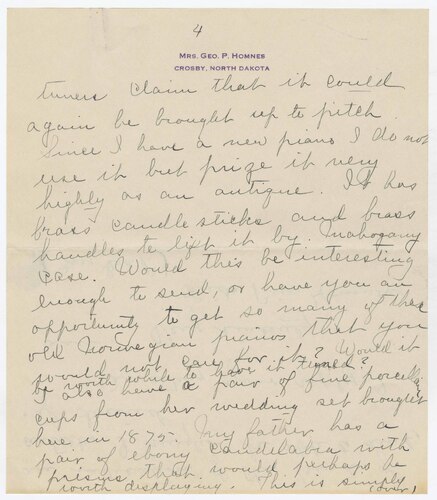 4
MRS. GEO. P. HOMNES
CROSBY, NORTH DAKOTA
tuners claim that it could
again be brought up to pitch.
Since I have a new piano I do not
use it but prize it very
highly as an antique. It has
brass candlesticks and brass
handles to lift it by. Mahogany
case. Would this be interesting
enough to send, or have you an
opportunity to get so many of these
old Norwegian pianos that you
would not care for it? Would it
be worth while to have it tuned?
I also have a pair of fine porcelain
cups from her wedding set brought
here in 1875. My father has a
pair of ebony candelabra with
prisms that would perhaps be
worth displaying. This is simply
(over)